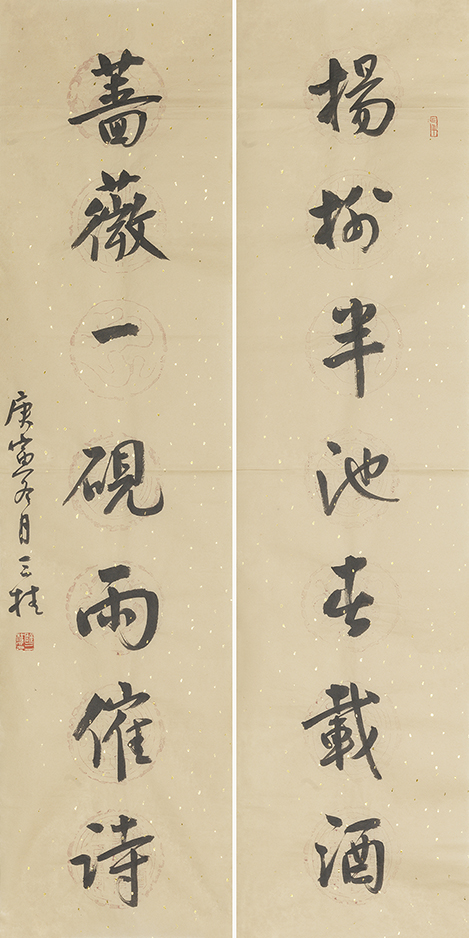 揚柳半池春載酒
薔薇一硯雨催詩
庚寅冬月三桂